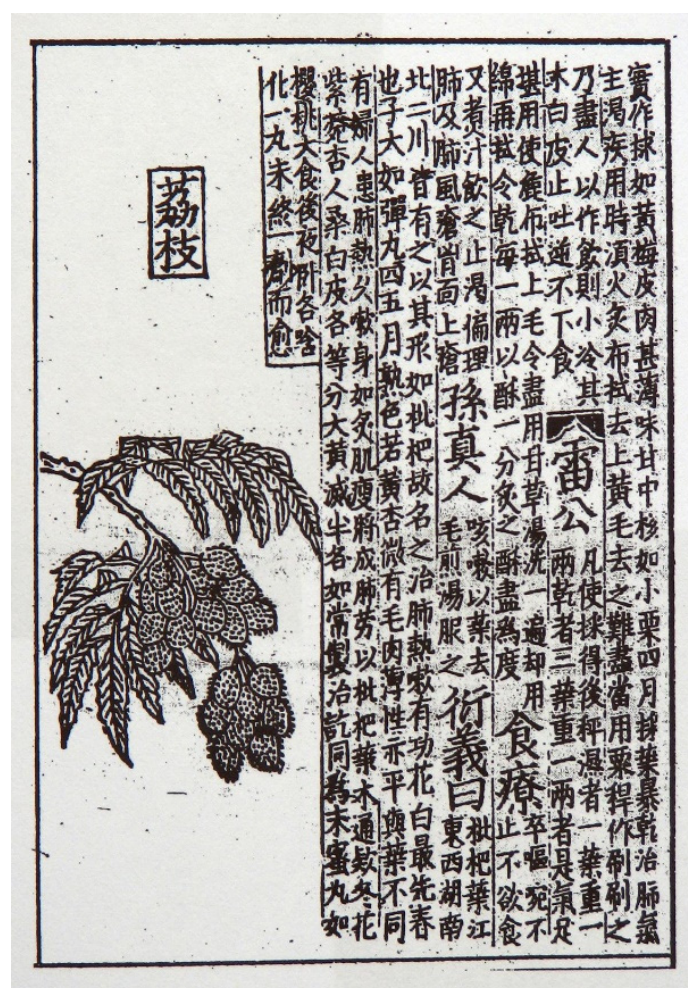 實作捄如黃梅皮肉甚薄味甘中核如小栗四月採葉暴乾治肺氣
主渴疾用時須火炙布拭去上黃毛去之難盡當用粟稈作刷刷之
乃盡人以作飲則小冷其
木白皮止吐逆不下食
雷公
凡使採得後秤濕者一葉重一
兩乾者三葉重一兩者是氣足
堪用使麄布拭上毛令盡用甘草湯洗一遍却用
綿再拭令乾每一兩以酥一分炙之酥盡為度
食療
卒嘔啘不
止不欲食
又煮汁飲之止渴偏理
肺及肺風瘡胷面上瘡
孫真人
咳嗽以葉去
毛前湯服之
衍義曰
枇杷葉江
東西湖南
北二川皆有之以其形如枇杷故名之治肺熱嗽有功花白最先春
也子大如彈丸四五月熟色若黃杏微有毛肉薄性亦平與葉不同
有婦人患肺熱久嗽身如炙肌瘦將成肺勞以枇杷葉木通款冬花
紫菀杏人桑白皮各等分大黃減半各如常製治訖同為末蜜丸如
櫻桃大食後夜臥各噙
化一丸未終一劑而愈
荔枝